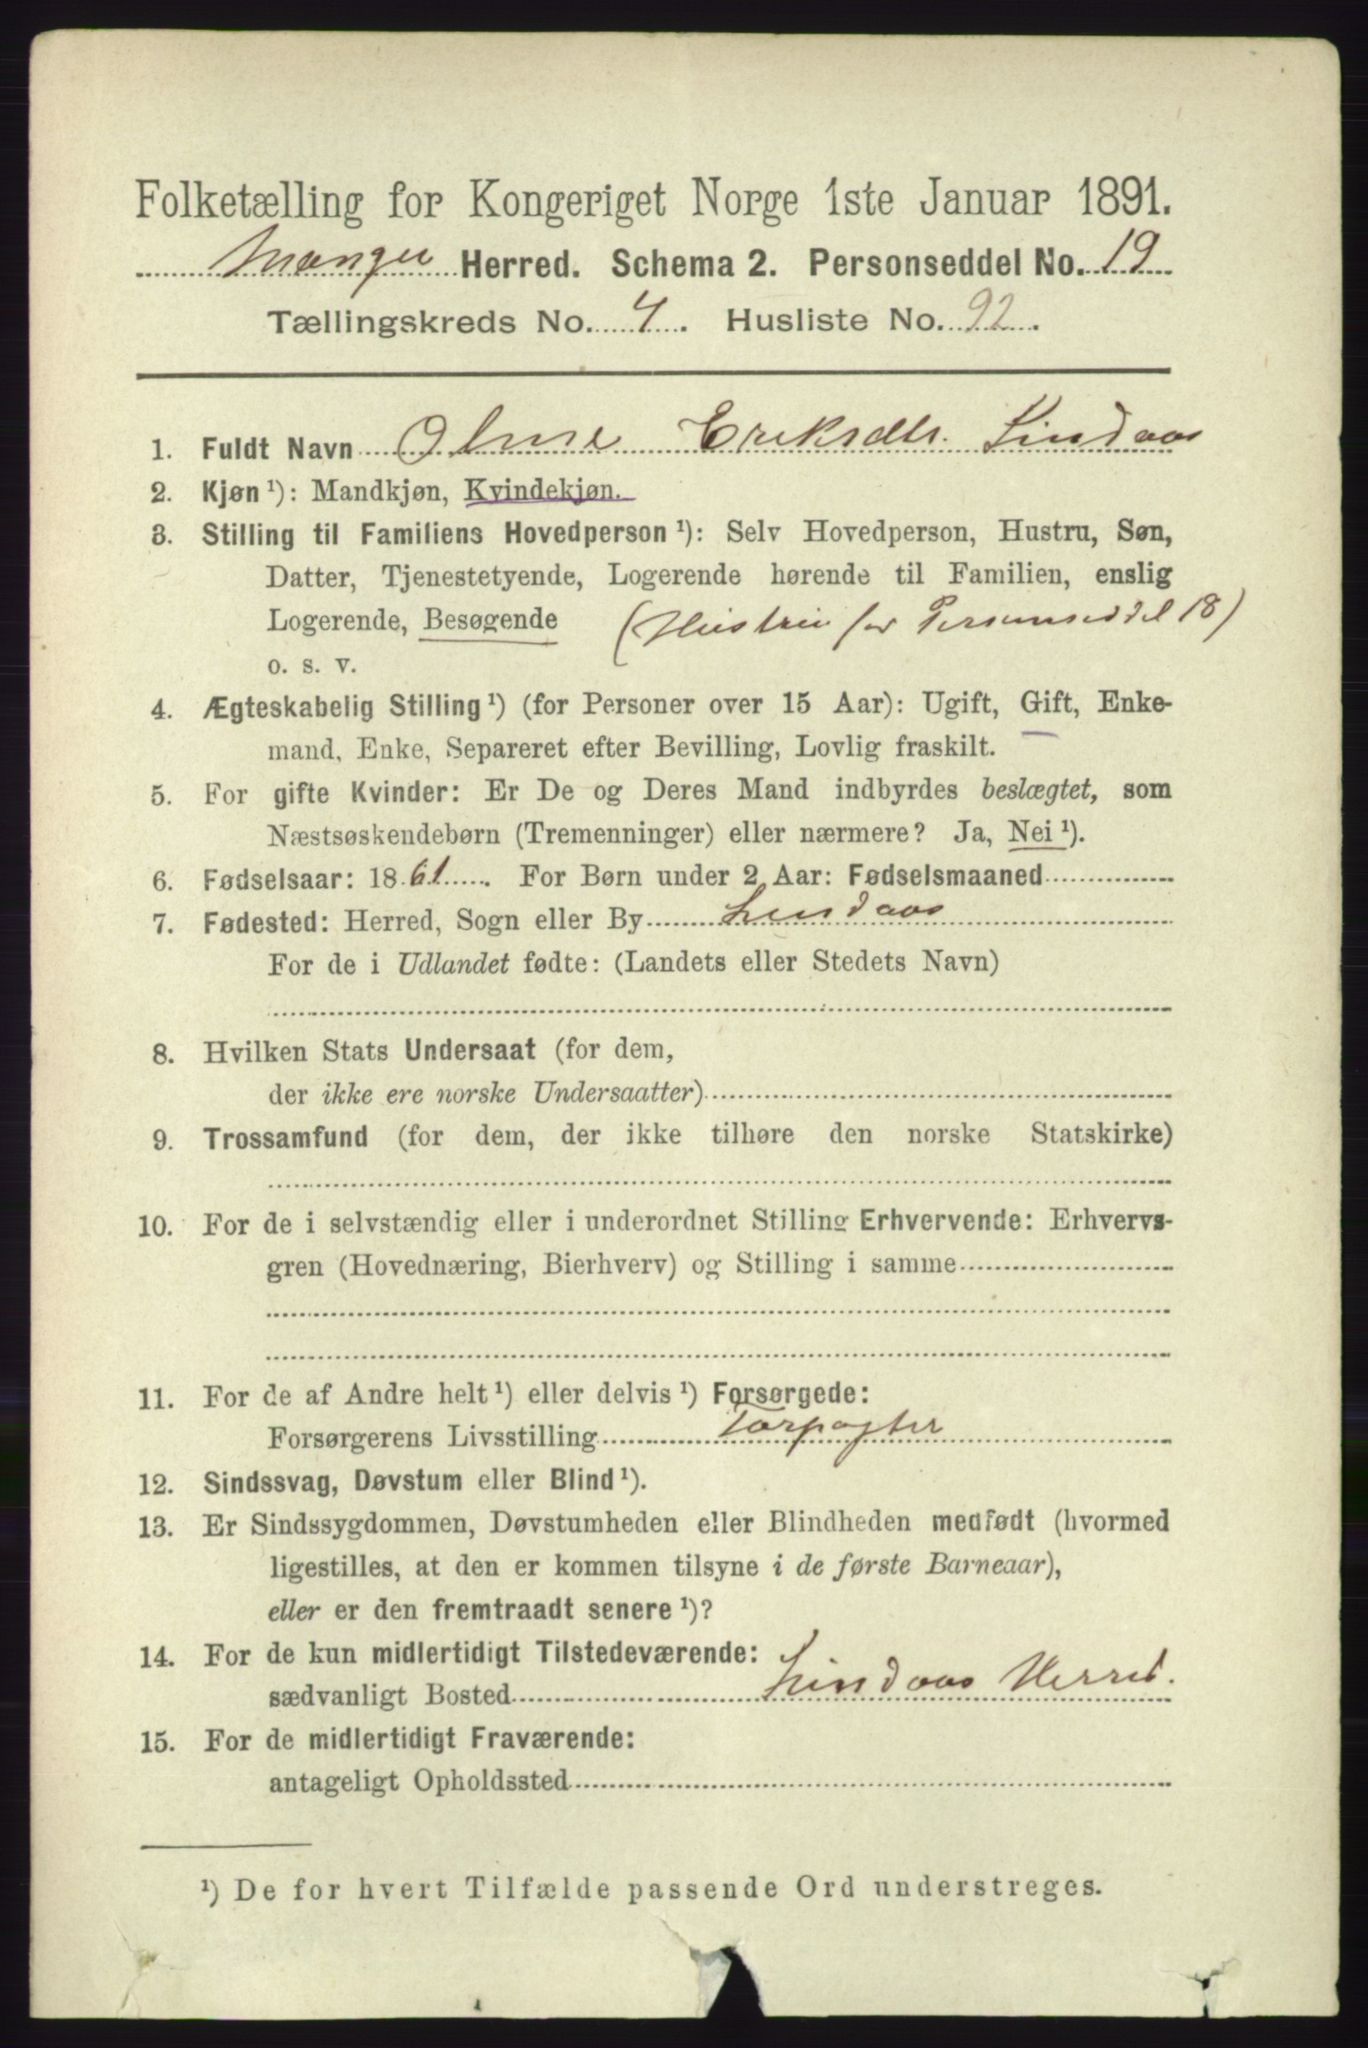 Folketælling for Kongeriget Norge 1ste Januar 1891.
Manger Herred. Schema 2. Personseddel No. 19
Tællingskreds No. 4. Husliste No. 92.
1. Fuldt Navn Oline Eriksdtr. Lindaas
2. Kjøn ¹): Mandkjøn, Kvindekjøn.
3. Stilling til Familiens Hovedperson ¹): Selv Hovedperson, Hustru, Søn,
Datter, Tjenestetyende, Logerende hørende til Familien, enslig
Logerende, Besøgende (Hustru for Personseddel 18)
o. s. v.
4. Ægteskabelig Stilling ¹) (for Personer over 15 Aar): Ugift, Gift, Enke-
mand, Enke, Separeret efter Bevilling, Lovlig fraskilt.
5. For gifte Kvinder: Er De og Deres Mand indbyrdes beslægtet, som
Næstsøskendebørn (Tremenninger) eller nærmere? Ja, Nei ¹).
6. Fødselsaar: 1861. For Børn under 2 Aar: Fødselsmaaned
7. Fødested: Herred, Sogn eller By Lindaas
For de i Udlandet fødte: (Landets eller Stedets Navn)
8. Hvilken Stats Undersaat (for dem,
der ikke ere norske Undersaatter)
9. Trossamfund (for dem, der ikke tilhøre den norske Statskirke)
10. For de i selvstændig eller i underordnet Stilling Erhvervende: Erhvervs-
gren (Hovednæring, Bierhverv) og Stilling i samme
11. For de af Andre helt ¹) eller delvis ¹) Forsørgede:
Forsørgerens Livsstilling Forpagter
12. Sindssvag, Døvstum eller Blind ¹).
13. Er Sindssygdommen, Døvstumheden eller Blindheden medfødt (hvormed
ligestilles, at den er kommen tilsyne i de første Barneaar),
eller er den fremtraadt senere ¹)?
14. For de kun midlertidigt Tilstedeværende:
sædvanligt Bosted Lindaas Herred.
15. For de midlertidigt Fraværende:
antageligt Opholdssted
¹) De for hvert Tilfælde passende Ord understreges.